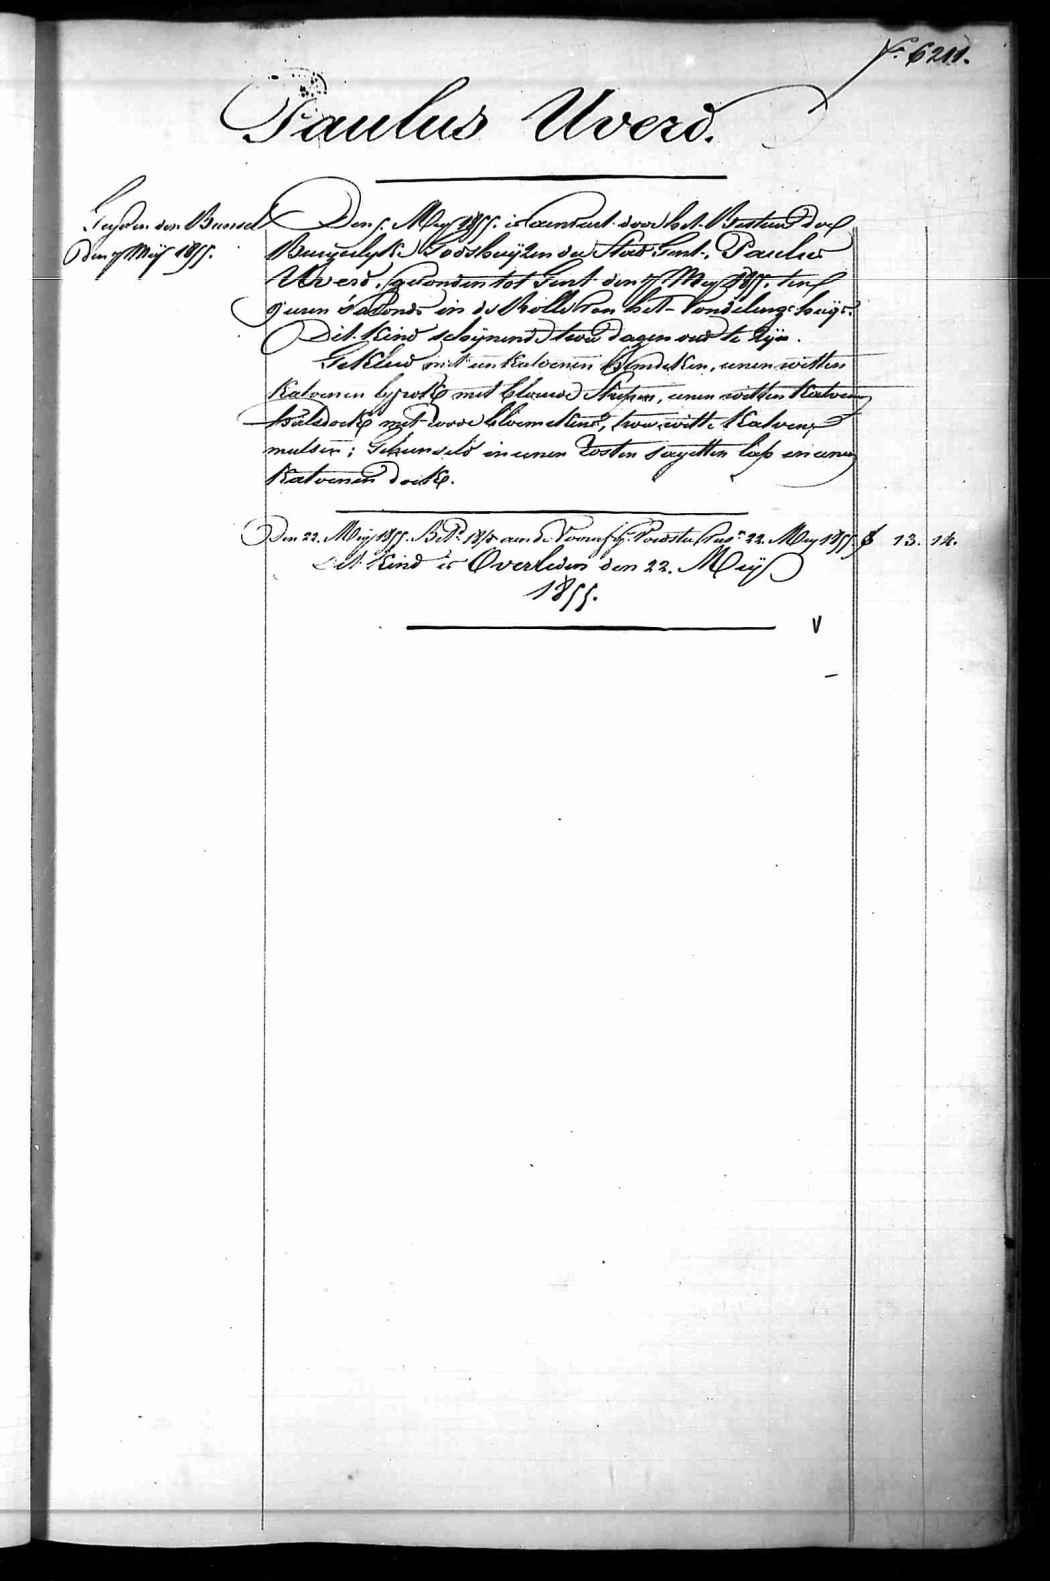 No. 6211.
Paulus Uverd.
den Bussel
Den 7 Meij 1855.
Den 5. Meij 1855. is aenveird door het Bestuer der
Burgerlyke Godshuijzen der Stad Gent, Paulus
Uverd, gevonden tot Gent den Meij 1855. ten
9 uren s'avonds in de Rolle van het Vondelings-huijs.
Dit Kind schijnende twee dagen oud te zijn.
Gekleed met een katoenen hemdeken, eenen witten
katoenen lyfrok met blauwe strepen, eenen witten katoenen
halsdoek met roode bloemekens, twee witte katoene
mutsen; Gebunseld in eenen rosten sayetten lap en eenen
katoenen doek.
Den 22. Meij 1855. aen de Voedster 22. Meij 1855 f 13. 14.
Dit Kind is Overleden den 22. Meij
1855.
V